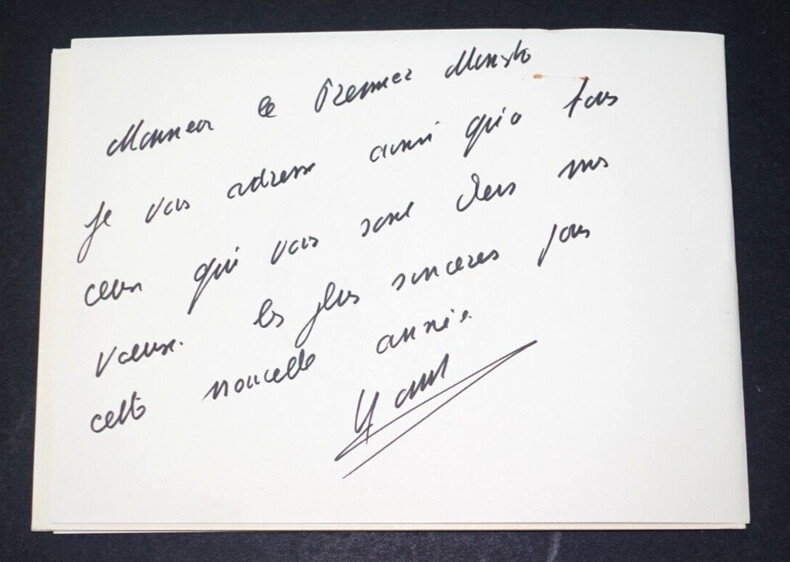 Monsieur le Premier Ministre
Je vous adresse ainsi qu'à tous
ceux qui vous sont chers mes
vœux les plus sincères pour
cette nouvelle année.